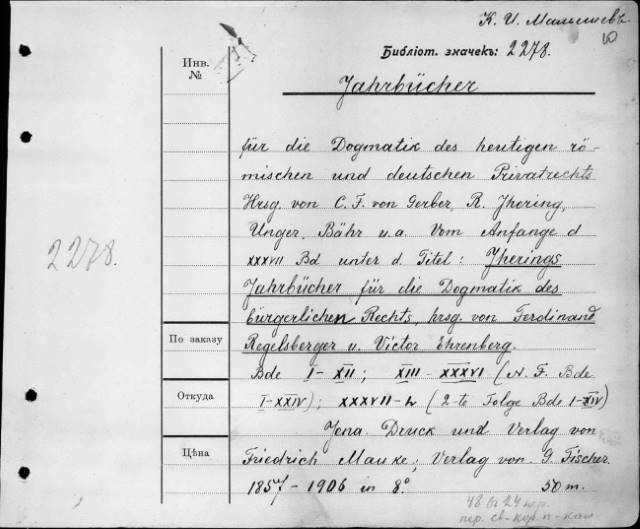 К. И. Малышевъ
Библіот. значекъ: 2278.
Инв.
№
Jahrbücher
für die Dogmatik des heutigen rö-
mischen und deutschen Privatrechts
Hrsg. von C. F. von Gerber, R. Jhering,
Unger, Bähr u. a. Vom Anfange d
XXXVII Bd unter d. Titel: Jherings
2278.
Jahrbücher für die Dogmatik des
bürgerlichen Rechts, hrsg. von Ferdinand
По заказу
Regelsberger u. Victor Ehrenberg.
Bde I-XII; XIII-XXXVI (N. F. Bde
Откуда
I-XXIV); XXXVII-L (2-te Folge Bde I-XIV)
Jena. Druck und Verlag von
Цѣна
Friedrich Mauke; Verlag von G. Fischer.
1857-1906 in 8° 50 m.
48 въ 24 пер.